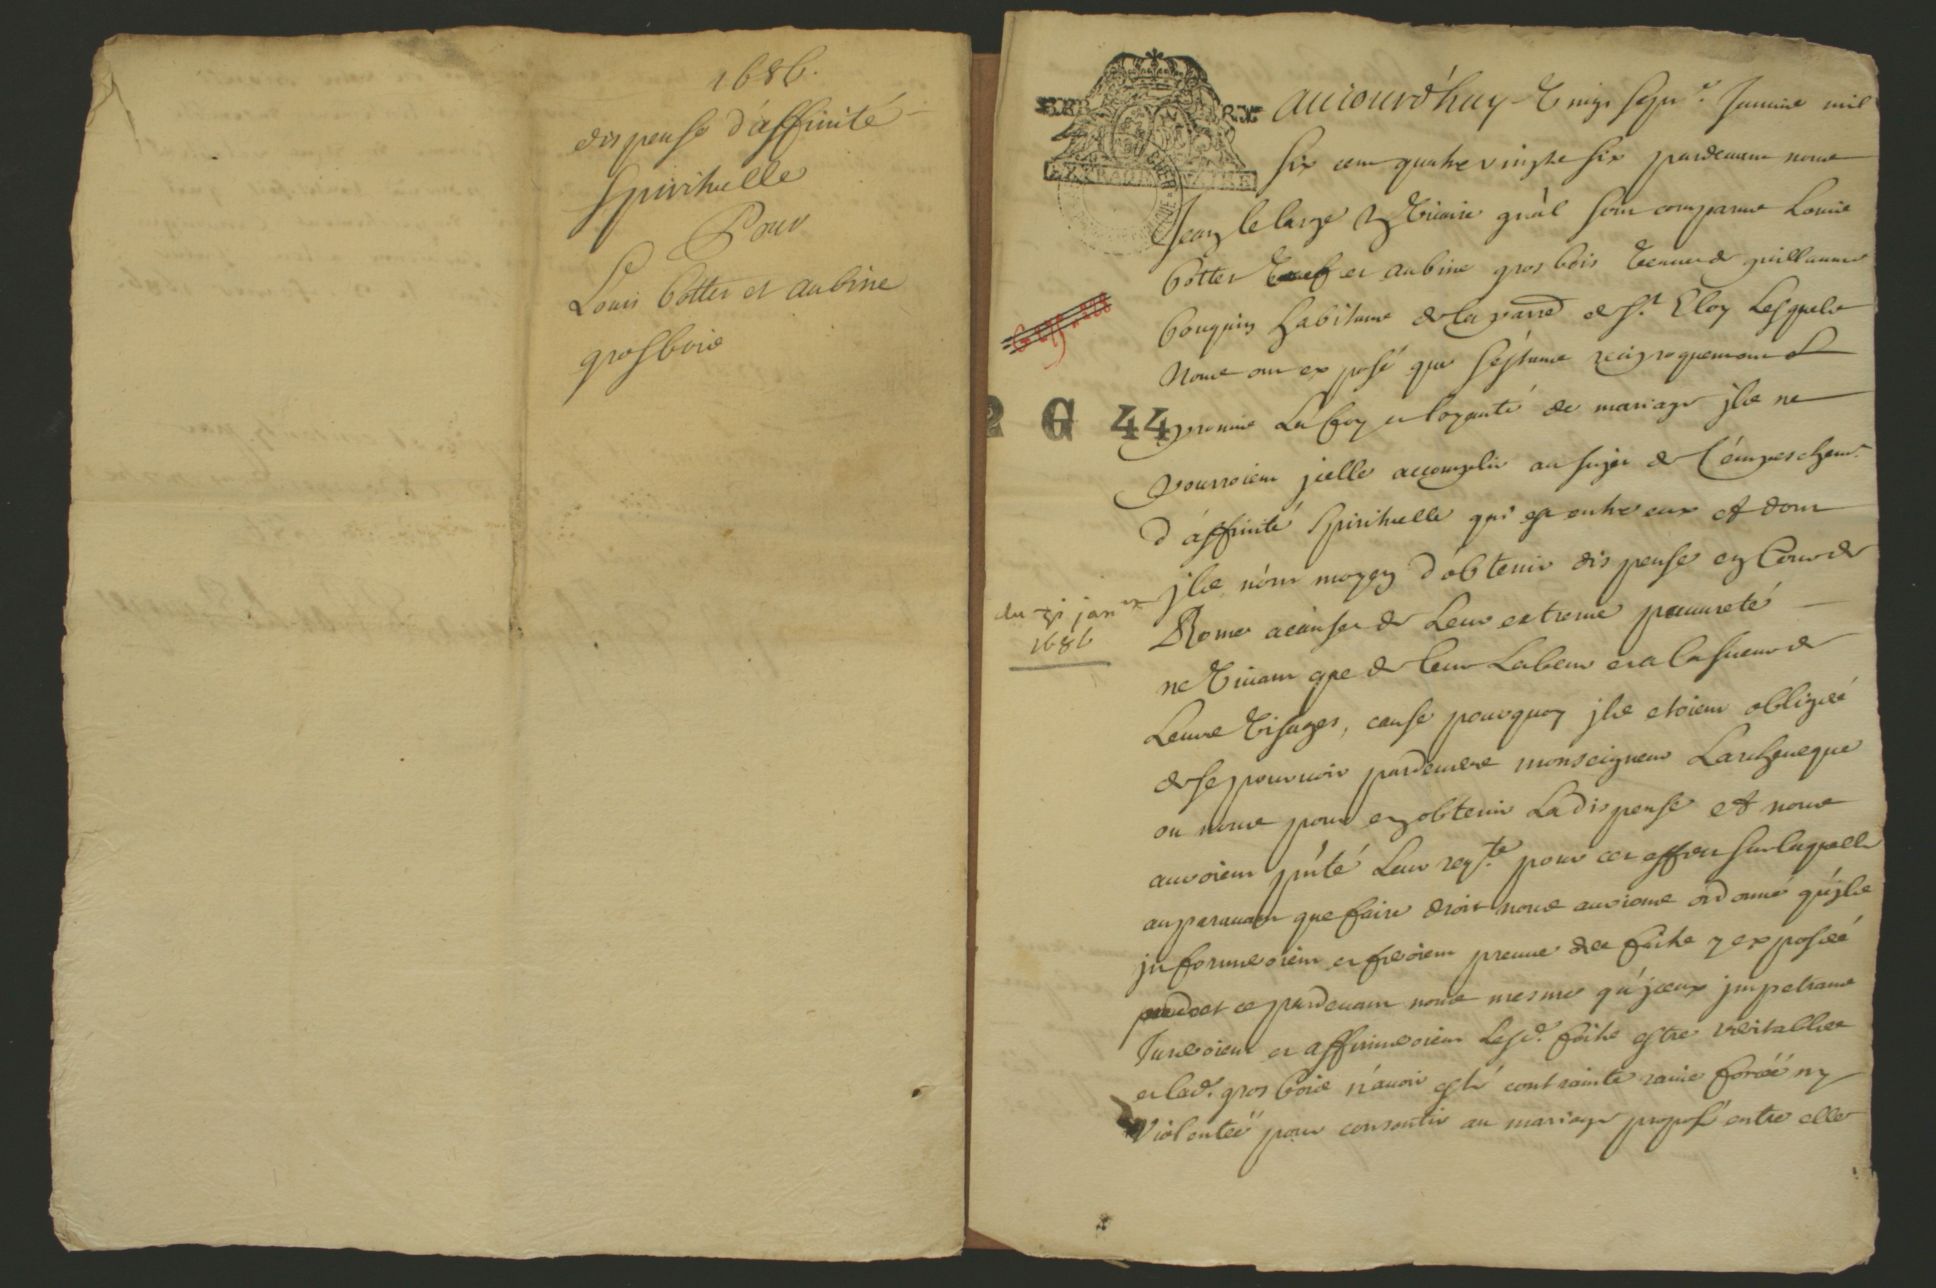 1686.
dispense d'affinité
spirituelle
Pour
Louis Cotter et aubine
grosboie
aujourd'huy Vingt sept.e Januier mil
six cent quatre vingts six pardeuant nous
Jean le large Vicaire gn'al sont comparus Louis
Cotter Veuf et aubine grosbois Veuue de guillaume
bouquin habitans de la parr. de St. Eloy Lesquels
Nous ont exposé que s'estans reciproquement
promis La foy et loyauté de mariage jls ne
pourroient jcelle accomplir au sujet de l'émpeschemt.
d'affinité spirituelle qui est entre eux et dont
jls n'ont moyen d'obtenir dispense en Cour de
Rome acause de Leur extreme pauureté
ne Viuant que de leur Labeur et a la sueur de
Leurs Visages, cause pourquoy jls etoient obligéé
de se pouruoir pardeuers monseigneur Larcheueque
ou nous pour en obtenir La dispense et nous
auroient pn'té Leur reqte. pour cet effet sur laquelle
auparauant que faire droit nous aurions ordonné qu'jls
jnformeroient et feroient preuue des faits y exposéé
et ce pardeuant nous mesme qu'jceux jmpetrans
Jureroient et affirmeroient Lesd. faits estre veritables
et lad. gros boie n'auoir esté contrainte rauie forcéé ny
Violentéé pour consentir au mariage proposé entre elle
2 G 44
du 27 janer
1686